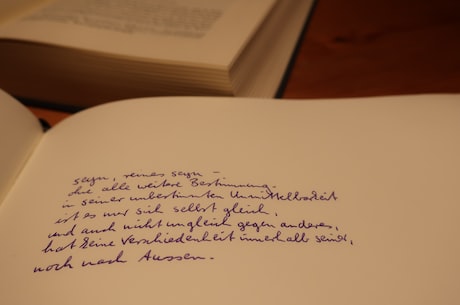 seyn, reines seyn –
ohne alle weitere Bestimmung.
in seiner unbestimmten Unmittelbarkeit
ist es nur sich selbst gleich,
und auch nicht ungleich gegen anderes,
hat keine Verschiedenheit innerhalb seiner,
noch nach Aussen.